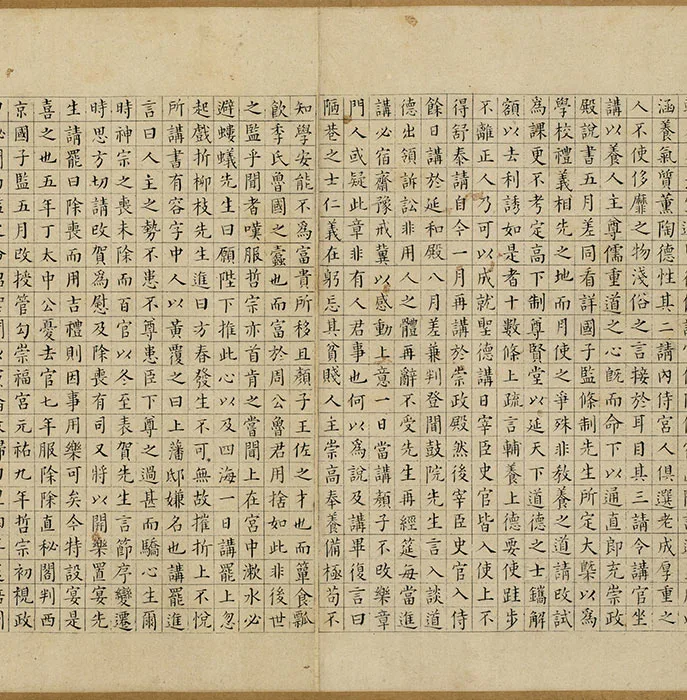 涵養氣質薰陶德性其二請內侍宮人俱選老成厚重之
人不使侈靡之物淺俗之言接於耳目其三請令講官坐
講以養人主尊儒重道之心既而命下以通直郎充崇政
殿說書五月差同看詳國子監條制先生所定大槩以為
學校禮義相先之地而月使之爭殊非敎養之道請改試
為課更不考定高下制尊賢堂以延天下道德之士鐫解
額以去利誘如是者十數條上疏言輔養上德要使跬步
不離正人乃可以成就聖德講日宰臣史官皆入使上不
得舒泰請自今一月再講於崇政殿然後宰臣史官入侍
餘日講於延和殿八月差兼判登聞鼓院先生言入談道
德出領訴訟非用人之體再辭不受先生再經筵每當進
講必宿齋豫戒冀以感動上意一日當講顏子不改樂章
門人或疑此章非有人君事也何以為說及講畢復言曰
陋巷之士仁義在躬忘其貧賤人主崇高奉養備極苟不
知學安能不為富貴所移且顏子王佐之才也而簞食瓢
飲季氏魯國之蠹也而富於周公魯君用捨如此非後世
之監乎聞者嘆服哲宗亦首肯之嘗聞上在宮中漱水必
避螻蟻先生曰願陛下推此心以及四海一日講罷上忽
起戲折柳枝先生進曰方春發生不可無故摧折上不悅
所講書有容字中人以黃覆之曰上藩邸嫌名也講罷進
言曰人主之勢不患不尊患臣下尊之過甚而驕心生爾
時神宗之喪未除而百官以冬至表賀先生言節序變遷
時思方切請改賀為慰及除喪有司又將以開樂置宴先
生請罷曰除喪而用吉禮則因事用樂可矣今特設宴是
喜之也五年丁太中公憂去官七年服除除直秘閣判西
京國子監五月改授管勾崇福宮元祐九年哲宗初親政